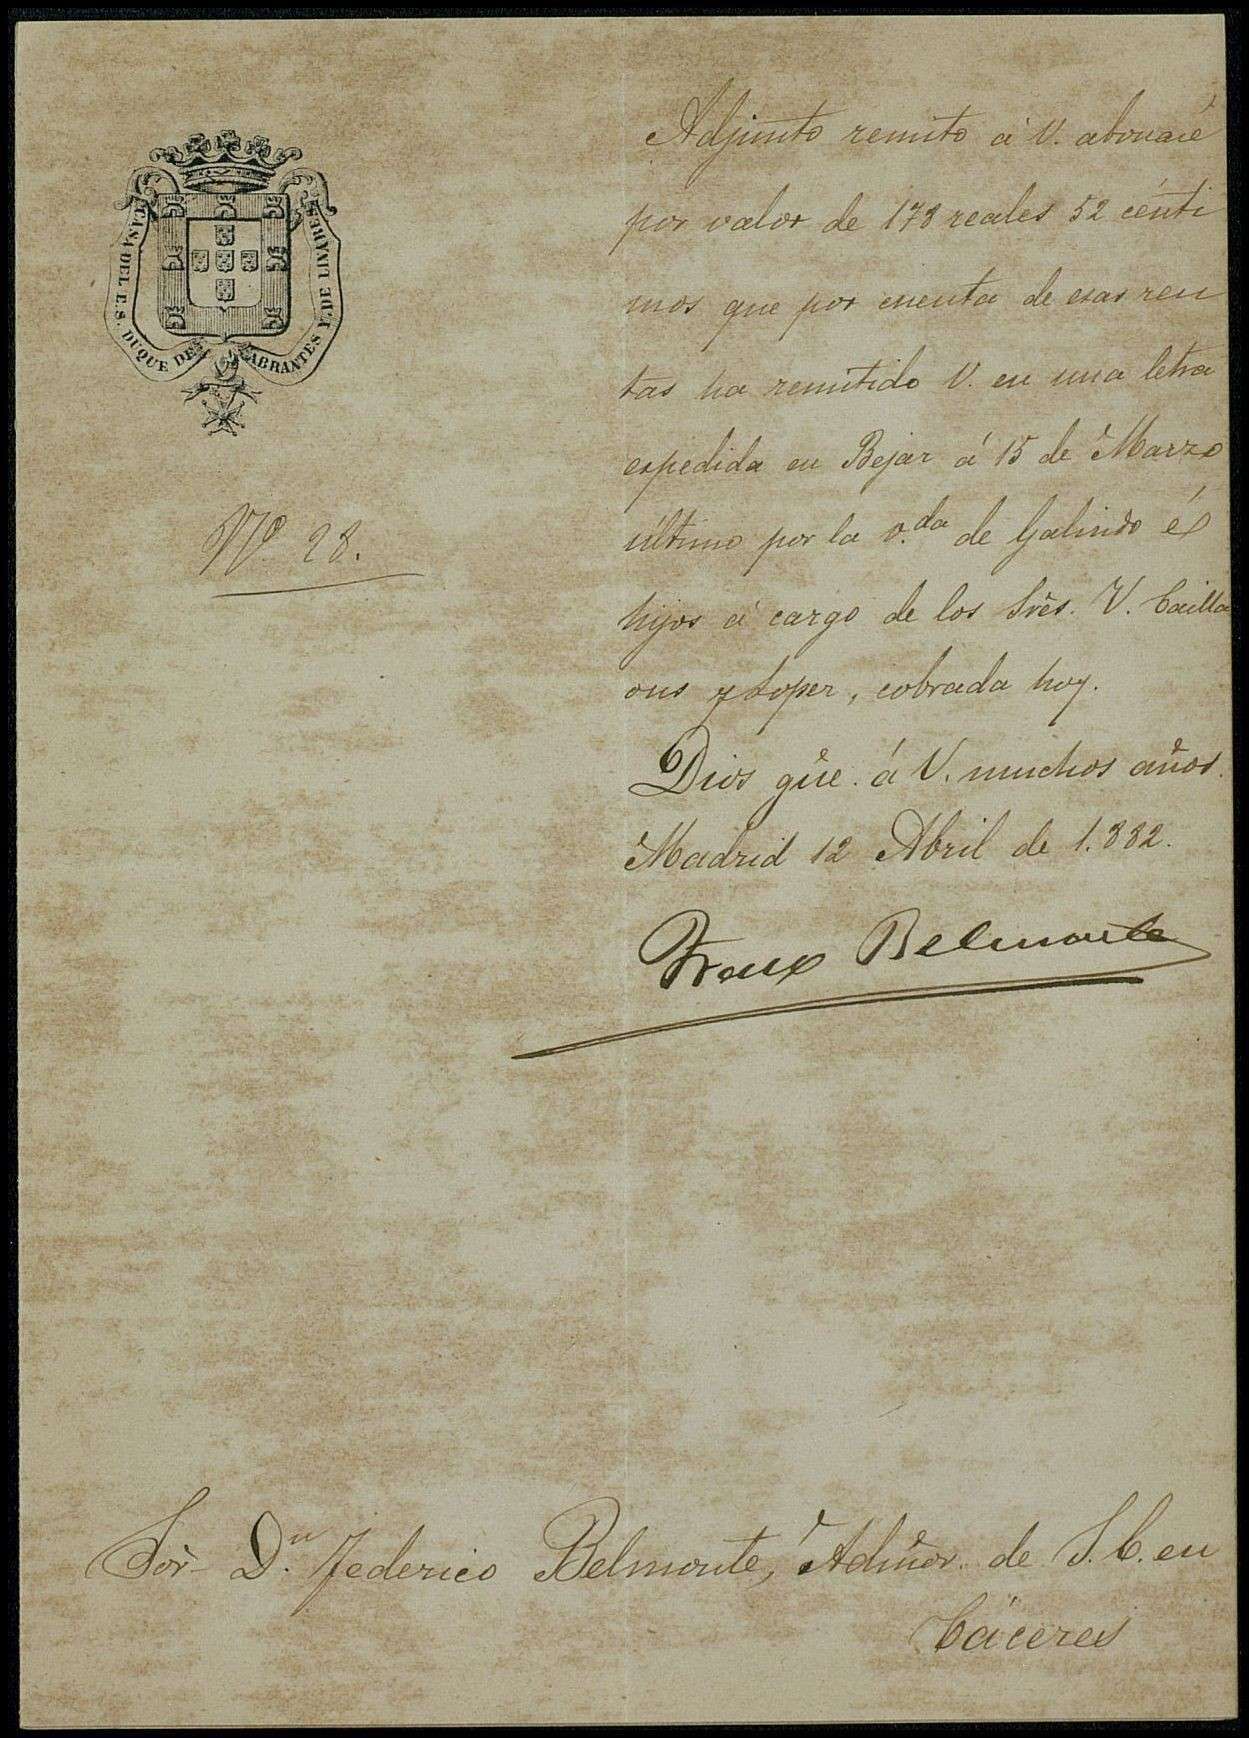 CASA DEL E. S. DUQUE DE ABRANTES Y DE LINARES
Nº 28.
Adjunto remito á V. abonaré
por valor de 178 reales 52 cénti
mos que por cuenta de esas ren
tas ha remitido V. en una letra
espedida en Bejar á 15 de Marzo
último por la v.da de Galindo é
hijos á cargo de los Srēs. V. Cailla
ous y Loper, cobrada hoy.
Dios gūe. á V. muchos años.
Madrid 12 Abril de 1.882.
Belmonte
Sor. D.n Federico Belmonte, Admor. de S. E. en
Cáceres